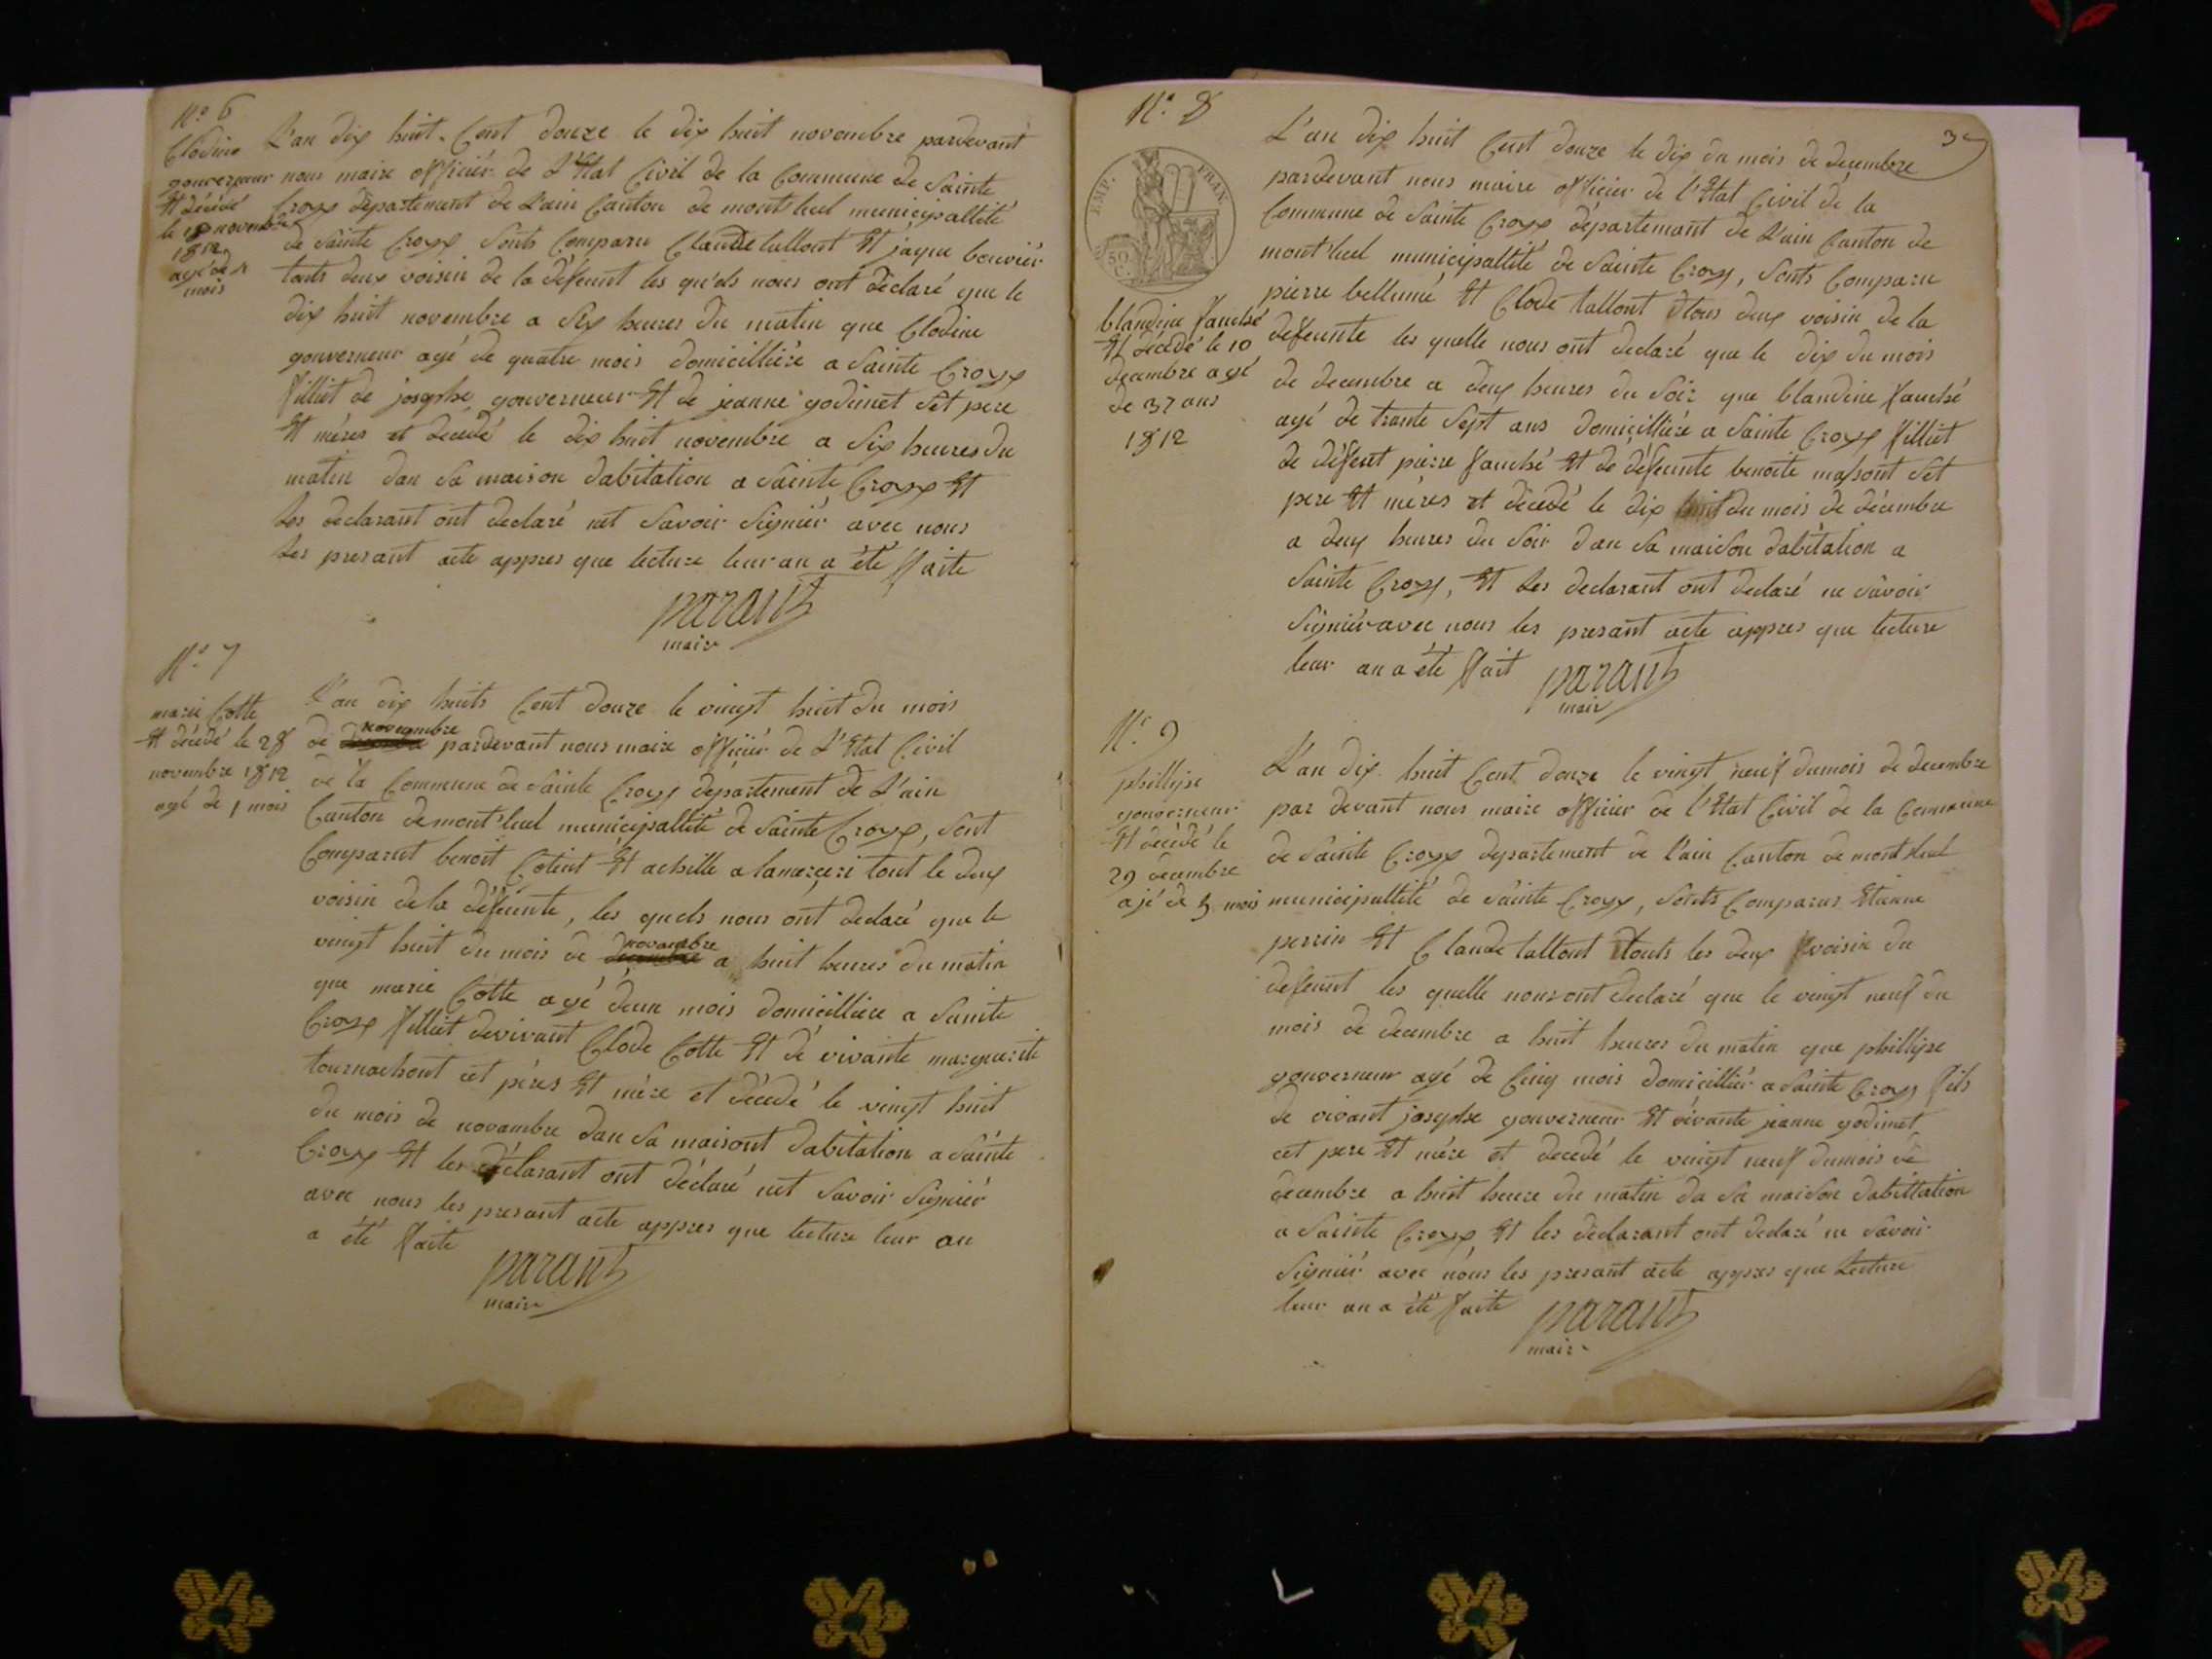 N.o 6
Clodine
gouverneur
Et décédé
le 18 novembre
1812
agé de 4
mois
L'an dix huit Cent douze le dix huit novembre pardevant
nous maire officiér de L'Etat Civil de la Commune de Sainte
Croyx département de L'ain Canton de mont'luel municipallité
de Sainte Croyx Sonts Comparu Claude tallont Et jaque bouviér
touts deux voisin de la défeunt les qu'els nous ont déclaré que le
dix huit novembre a Six heures du matin que Clodine
gouverneur agé de quatre mois domicilliére a Sainte Croyx
filliet de josephe gouverneur Et de jeanne godimet Sèt pere
Et méres et decedé le dix huit novembre a Six heures du
matin dan Sa maison dabitation a Sainte Croyx Et
les declarant ont declaré nèt Savoir Signiér avec nous
les presant acte appres que lecture leur an a été faite
parant
maire
N.o 7
marie Cotte
Et décédé le 28
novembre 1812
agé de 1 mois
L'an dix huits Cent douze le vingt huit du mois
de novembre pardevant nous maire officiér de L'Etat Civil
de la Commune de Sainte Croyx département de L'ain
Canton de mont'luel municipallité de Sainte Croyx, Sont
Comparut benoit Cotint Et achille a lamerçeri tout le deux
voisin de la défeunte, les quels nous ont declaré que le
vingt huit du mois de novambre a huit heures du matin
que marie Cotte agé deun mois domicilliere a Sainte
Croyx filliet de vivant Clode Cotte Et dé vivante marguerite
tournachont cet péres Et mére et décedé le vingt huit
du mois de novambre dan Sa maisont dabitation a Sainte
Croyx Et les déclarant ont déclaré nèt Savoir Signiér
avec nous les presant acte appres que lecture leur an
a été faite
parant
maire
N.o 8
37
EMP. FRAN.
50
C.
blandine fauché
Et decedé le 10
decambre agé
de 37 ans
1812
L'an dix huit Cent douze le dix du mois de decembre
pardevant nous maire officier de l'Etat Civil de la
Commune de Sainte Croyx département de L'ain Canton de
mont'luel municipallité de Sainte Croyx, Sonts Comparu
pierre bellumé Et Clode tallont tous deux voisin de la
defeunte les quelle nous ont declaré que le dix du mois
de decembre a deux heures du Soir que blandine fauché
agé de trante Sept ans domicilliére a Sainte Croyx filliet
de défeut pierre fauché Et de défeunte benoite massont Sèt
pere Et méres et décedé le dix du mois de décembre
a deux heures du Soir dan Sa maison dabitation a
Sainte Croyx, Et les declarant ont declaré ne Savoir
Signiér avec nous les presant acte appres que lecture
leur an a été fait
parant
mair
N.o 9
phillipe
gouverneur
Et décédé le
29 decembre
ajé de 5 mois
L'an dix huit Cent douze le vingt neuf du mois de decembre
par devant nous maire officier de l'Etat Civil de la Commune
de Sainte Croyx departement de l'ain Canton de mont luel
municipallité de Sainte Croyx, Sonts Comparus Etienne
perrin Et Claude tallont touts les deux voisin du
defeunt les quelle nous ont declaré que le vingt neuf du
mois de decembre a huit heures du matin que phillipe
gouverneur agé de Cinq mois domicilliér a Sainte Croyx fils
de vivant josephe gouverneur Et vivante jeanne godimet
cet pere Et mére et decedé le vingt neuf du mois de
decembre a huit heure du matin da Sa maison dabittation
a Sainte Croyx Et les declarant ont declaré ne Savoir
Signiér avec nous les presant acte appres que lecture
leur an a été faite
parant
maire